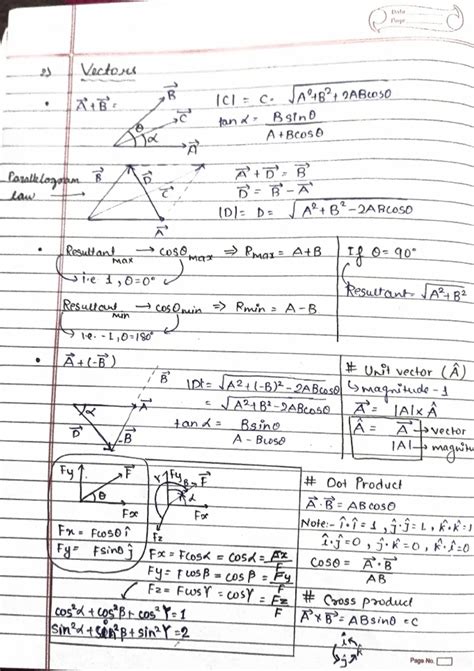 Date
Page
2) Vectors
• A⃗+B⃗ =
B⃗
C⃗
θ
α
A⃗
|C| = C = √A²+B²+2ABcosθ
tan α = Bsinθ / A+Bcosθ
Parallelogram law →
B⃗
D⃗
C⃗
A⃗
A⃗ + D⃗ = B⃗
D⃗ = B⃗ - A⃗
|D| = D = √A²+B²-2ABcosθ
• Resultant max → cosθ max ⇒ Rmax = A+B
↳ i.e 1, θ=0°
Resultant min → cosθ min ⇒ Rmin = A-B
↳ i.e. -1, θ=180°
If θ = 90°
Resultant = √A²+B²
• A⃗+(-B⃗)
B⃗
α
A⃗
D⃗
-B⃗
|D| = √A²+(-B)²-2ABcosθ
= √A²+B²-2ABcosθ
tan α = Bsinθ / A-Bcosθ
# Unit vector (Â)
↳ magnitude - 1
A⃗ = |A| × Â
Â = A⃗ → vector
|A| → magnitu
Fy
F⃗
θ
Fx
Fx = Fcosθ î
Fy = Fsinθ ĵ
Y
Fy
β
F⃗
α
Fx
Fz
Fx = Fcosα = cosα = Fx/F
Fy = Fcosβ = cosβ = Fy/F
Fz = Fcosγ = cosγ = Fz/F
cos²α + cos²β + cos²γ = 1
sin²α + sin²β + sin²γ = 2
# Dot Product
A⃗·B⃗ = ABcosθ
Note:- î·î = 1, ĵ·ĵ = 1, k̂·k̂ = 1
î·ĵ = 0, ĵ·k̂ = 0, k̂·î = 0
Cosθ = A⃗·B⃗ / AB
# Cross product
A⃗×B⃗ = ABsinθ = C
î
k̂
ĵ
Page No.